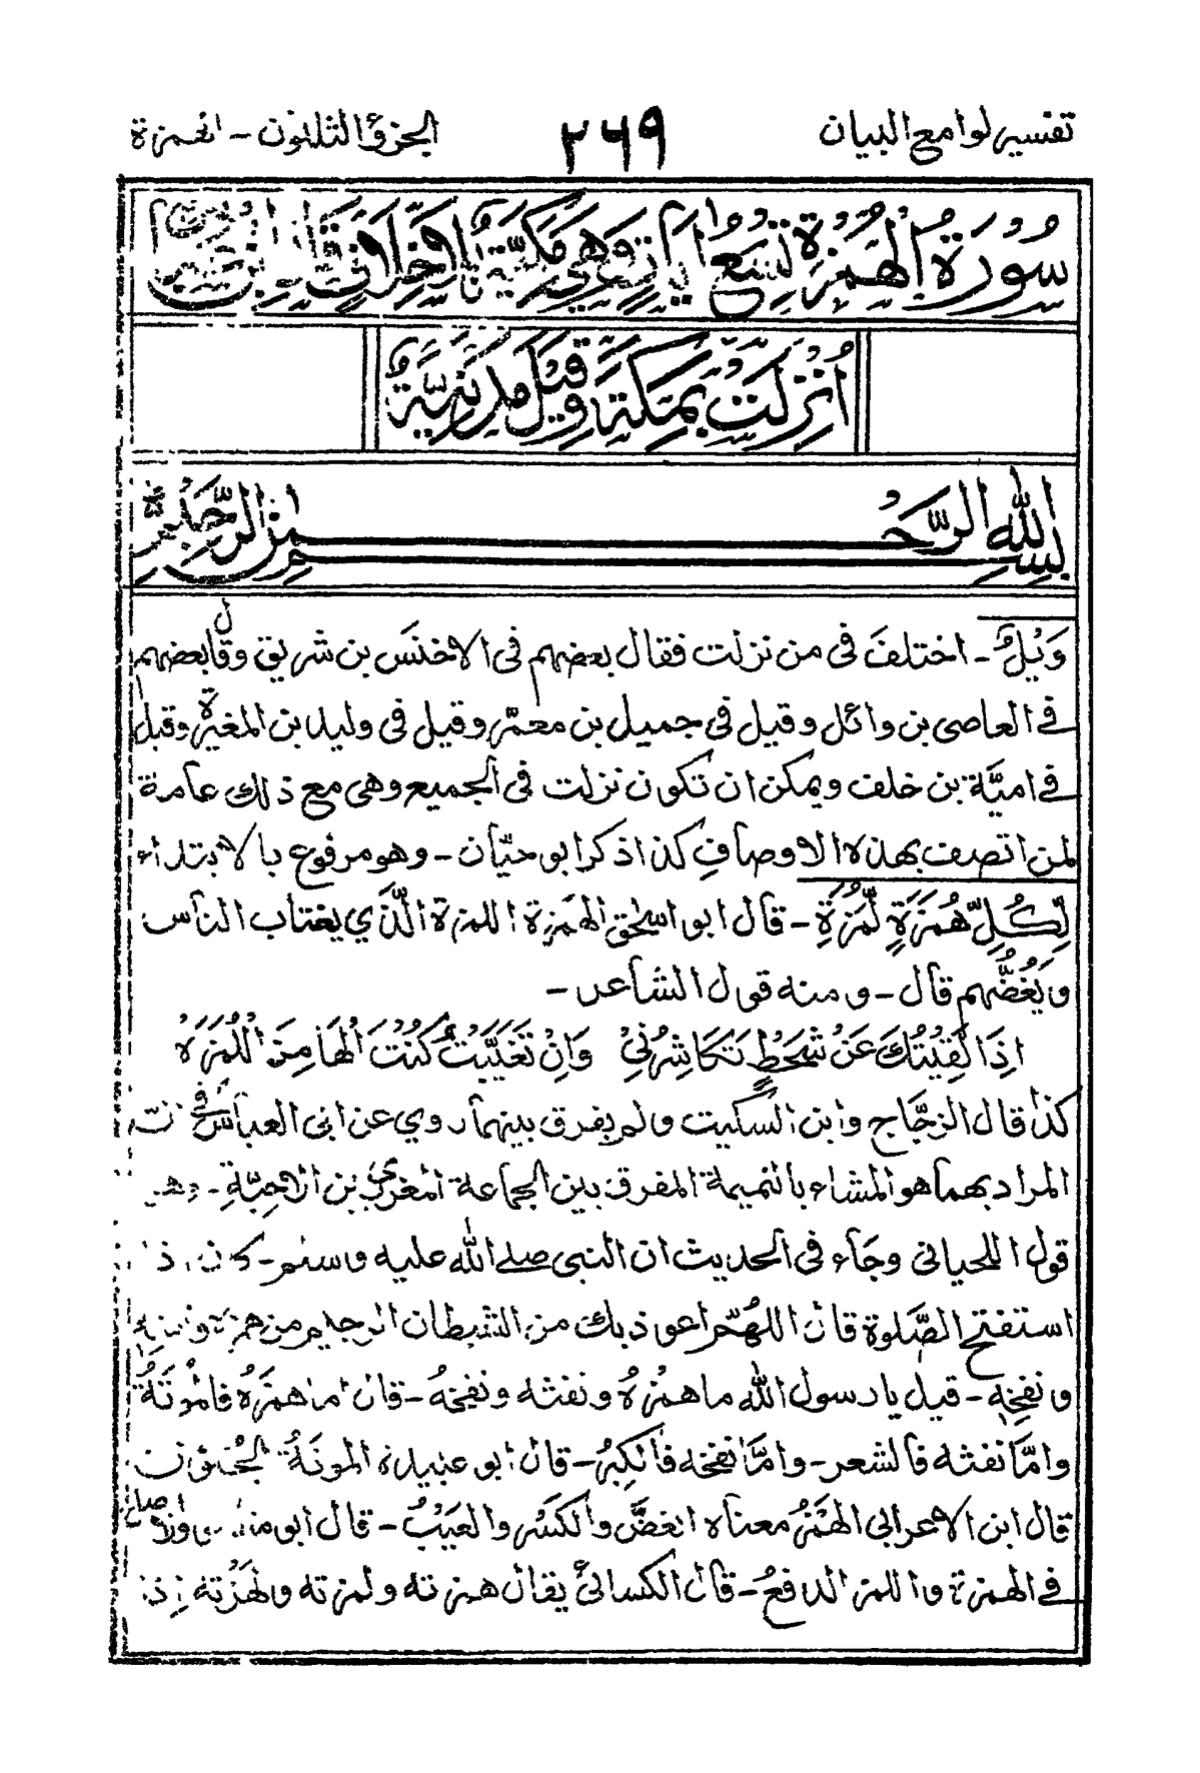 تفسير لوامع البيان ٢٦٩ الجزؤ الثلثون - الهمزة
سُورَةُ الْهُمَزَةِ تِسْعُ اٰيَاتٍ وَهِيَ مَكِّيَّةٌ بِلَا خِلَافٍ قَالَ
اُنْزِلَتْ بِمَكَّةَ وَقِيْلَ مَدَنِيَّةٌ
بسم الله الرحمن الرحيم
وَيْلٌ - اختلفَ فى من نزلت فقال بعضهم فى الاخنَس بن شريق وقال بعضهم
فے العاصى بن وائل وقيل فى جميل بن معمّر وقيل فى وليد بن المغيرة وقيل
فے اميَّة بن خلف ويمكن ان تكون نزلت فى الجميع وهى مع ذلك عامة
لمن اتصف بهذه الاوصافِ كذا ذكر ابو حيّان - وهو مرفوع بالابتداء
لِّكُلِّ هُمَزَةٍ لُّمَزَةِ - قال ابو اسحٰق الهمَزة اللمزة الَّذي يغتاب الناس
ويَغُضُّهم قال - ومنه قول الشاعر -
اِذَا لَقِيْتُكَ عَنْ شَحَطٍ تُكَاشِرُنِيْ وَاِنْ تَغَيَّبْتُ كُنْتَ الْهَامِزَ اللُّمَزَهْ
كذا قال الزجَّاج وابن السكيت ولم يفرق بينهما روي عن ابى العباس فى
المراد بهما هو المشاء بالنميمة المفرق بين الجماعة المغري بين الاحِبَّةِ - وهو
قول اللحيانى وجَآء فى الحديث ان النبى صلے الله عليه وسلم - كان اذا
استفتح الصَّلوة قال اللهُمّ اعوذ بك من الشيطان الرجيم من همزه ونفثه
ونفخِه - قيل يا رسول الله ما همزُهُ ونفثه ونفخهُ - قال اما همزَهُ فالمُوْتَةُ
وامَّا نفثه فالشعر - وامَّا نفخه فالكِبرُ - قال ابو عبيدة الموتَةُ الجُنون
قال ابن الاعرابى الهَمْزُ معناه الغضَّ والكسْر والعَيْبُ - قال ابو
فے الهمزة واللمز الدفعُ - قال الكسائىُّ يقال همزته ولمزته ولهَزْته اذا